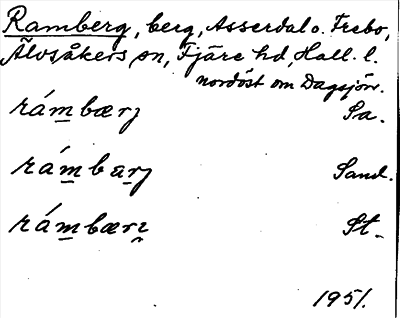 Ramberg, berg, Asserdal o. Frebo,
Älvsåkers sn, Fjäre hd, Hall. l.
nordöst om Dagsjön.
rámbærj Sa.
rámbarj Sand.
rámbærı St.
1951.